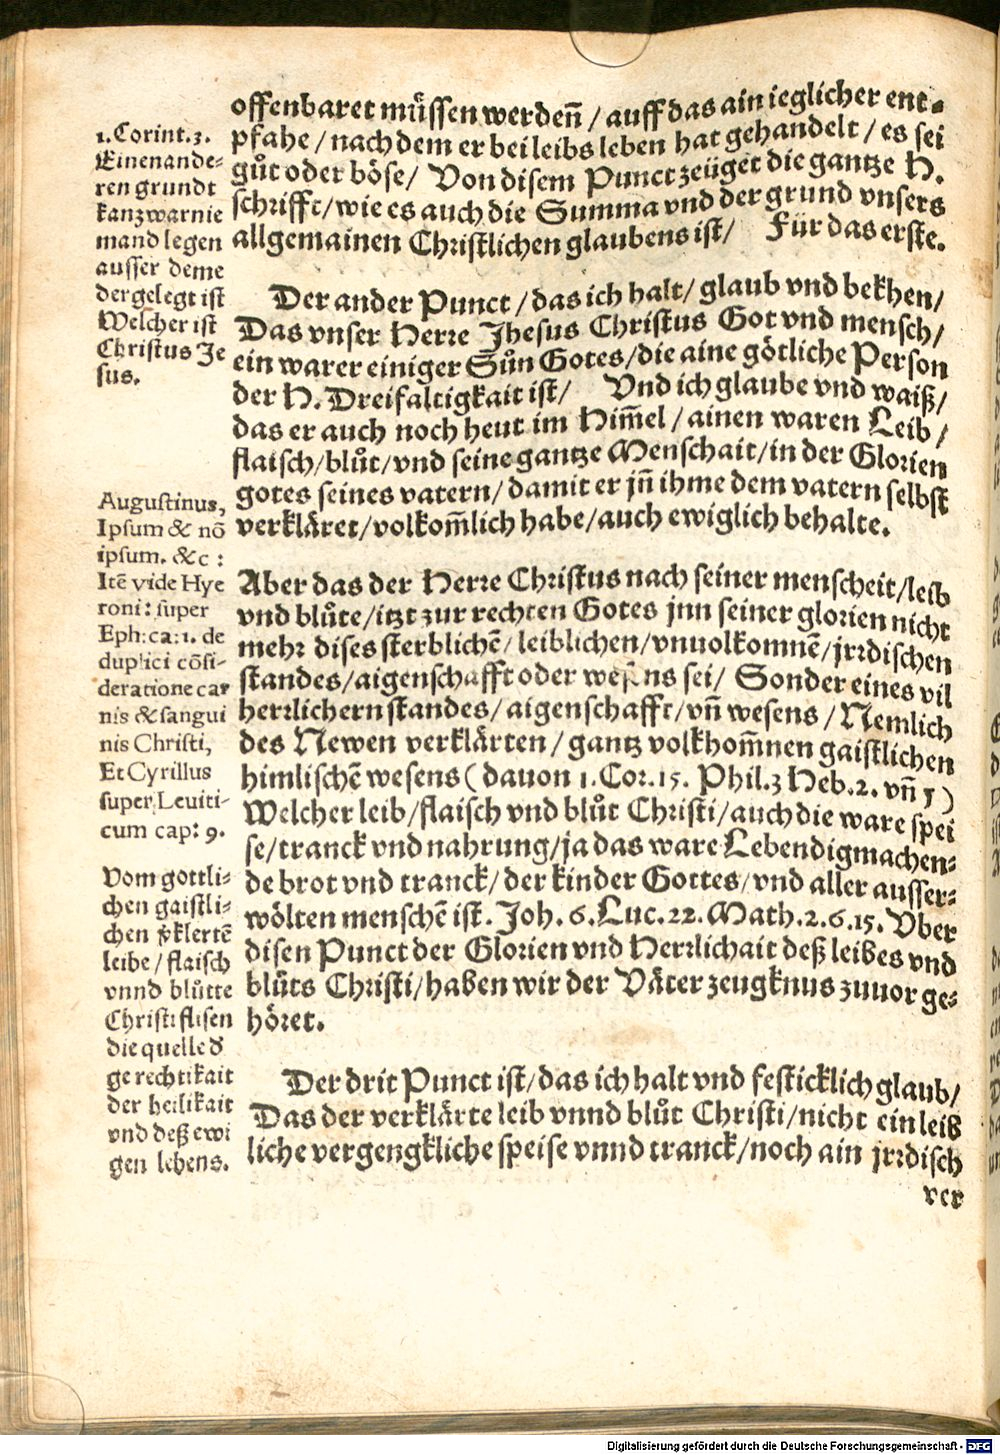 offenbaret müssen werdeñ / auff das ain ieglicher ent⸗
pfahe / nach dem er bei leibs leben hat gehandelt / es sei
gůt oder böse / Von disem Punct zeüget die gantze H.
schrifft / wie es auch die Summa vnd der grund vnsers
allgemainen Christlichen glaubens ist / Für das erste.
1. Corint. 3.
Einen ande⸗
ren grundt
kanzwar nie
mand legen
ausser deme
der gelegt ist
Welcher ist
Christus Je
sus.
Der ander Punct / das ich halt / glaub vnd bekhen /
Das vnser Herre Jhesus Christus Got vnd mensch /
ein warer einiger Sůn Gotes / die aine götliche Person
der H. Dreifaltigkait ist / Vnd ich glaube vnd waiß /
das er auch noch heut im Him̃el / ainen waren Leib /
flaisch / blůt / vnd seine gantze Menschait / in der Glorien
gotes seines vatern / damit er jñ ihme dem vatern selbst
verkläret / volkom̃lich habe / auch ewiglich behalte.
Augustinus,
Ipsum & nõ
ipsum. &c :
Itẽ vide Hye
roni: super
Eph: ca: 1. de
duplici cõsi⸗
deratione car
nis & sangui
nis Christi,
Et Cyrillus
super Leuiti⸗
cum cap: 9.
Aber das der Herre Christus nach seiner menscheit / leib
vnd blůte / itzt zur rechten Gotes jnn seiner glorien nicht
mehr dises sterblichẽ / leiblichen / vnuolkomnẽ / jrrdischen
standes / aigenschafft oder wesens sei / Sonder eines vil
herrlichern standes / aigenschafft / vñ wesens / Nemlich
des Newen verklärten / gantz volkhom̃nen gaistlichen
himlischẽ wesens ( dauon 1. Cor. 15. Phil. 3 Heb. 2. vñ 5 )
Welcher leib / flaisch vnd blůt Christi / auch die ware spei
se / tranck vnd nahrung / ja das ware Lebendigmachen⸗
de brot vnd tranck / der kinder Gottes / vnd aller ausser⸗
wölten menschẽ ist. Joh. 6. Luc. 22. Math. 2. 6. 15. Vber
disen Punct der Glorien vnd Herrlichait deß leibes vnd
blůts Christi / haben wir der Väter zeugknus zuuor ge⸗
höret.
Vom gottli⸗
chen gaistli⸗
chen p̃klertẽ
leibe / flaisch
vnnd blůtte
Christi flisen
die quelle d̃
gerechtikait
der heilikait
vnd deß ewi
gen lebens.
Der drit Punct ist / das ich halt vnd festicklich glaub /
Das der verklärte leib vnnd blůt Christi / nicht ein leib
liche vergengkliche speise vnnd tranck / noch ain jrrdisch
ver
Digitalisierung gefördert durch die Deutsche Forschungsgemeinschaft - DFG